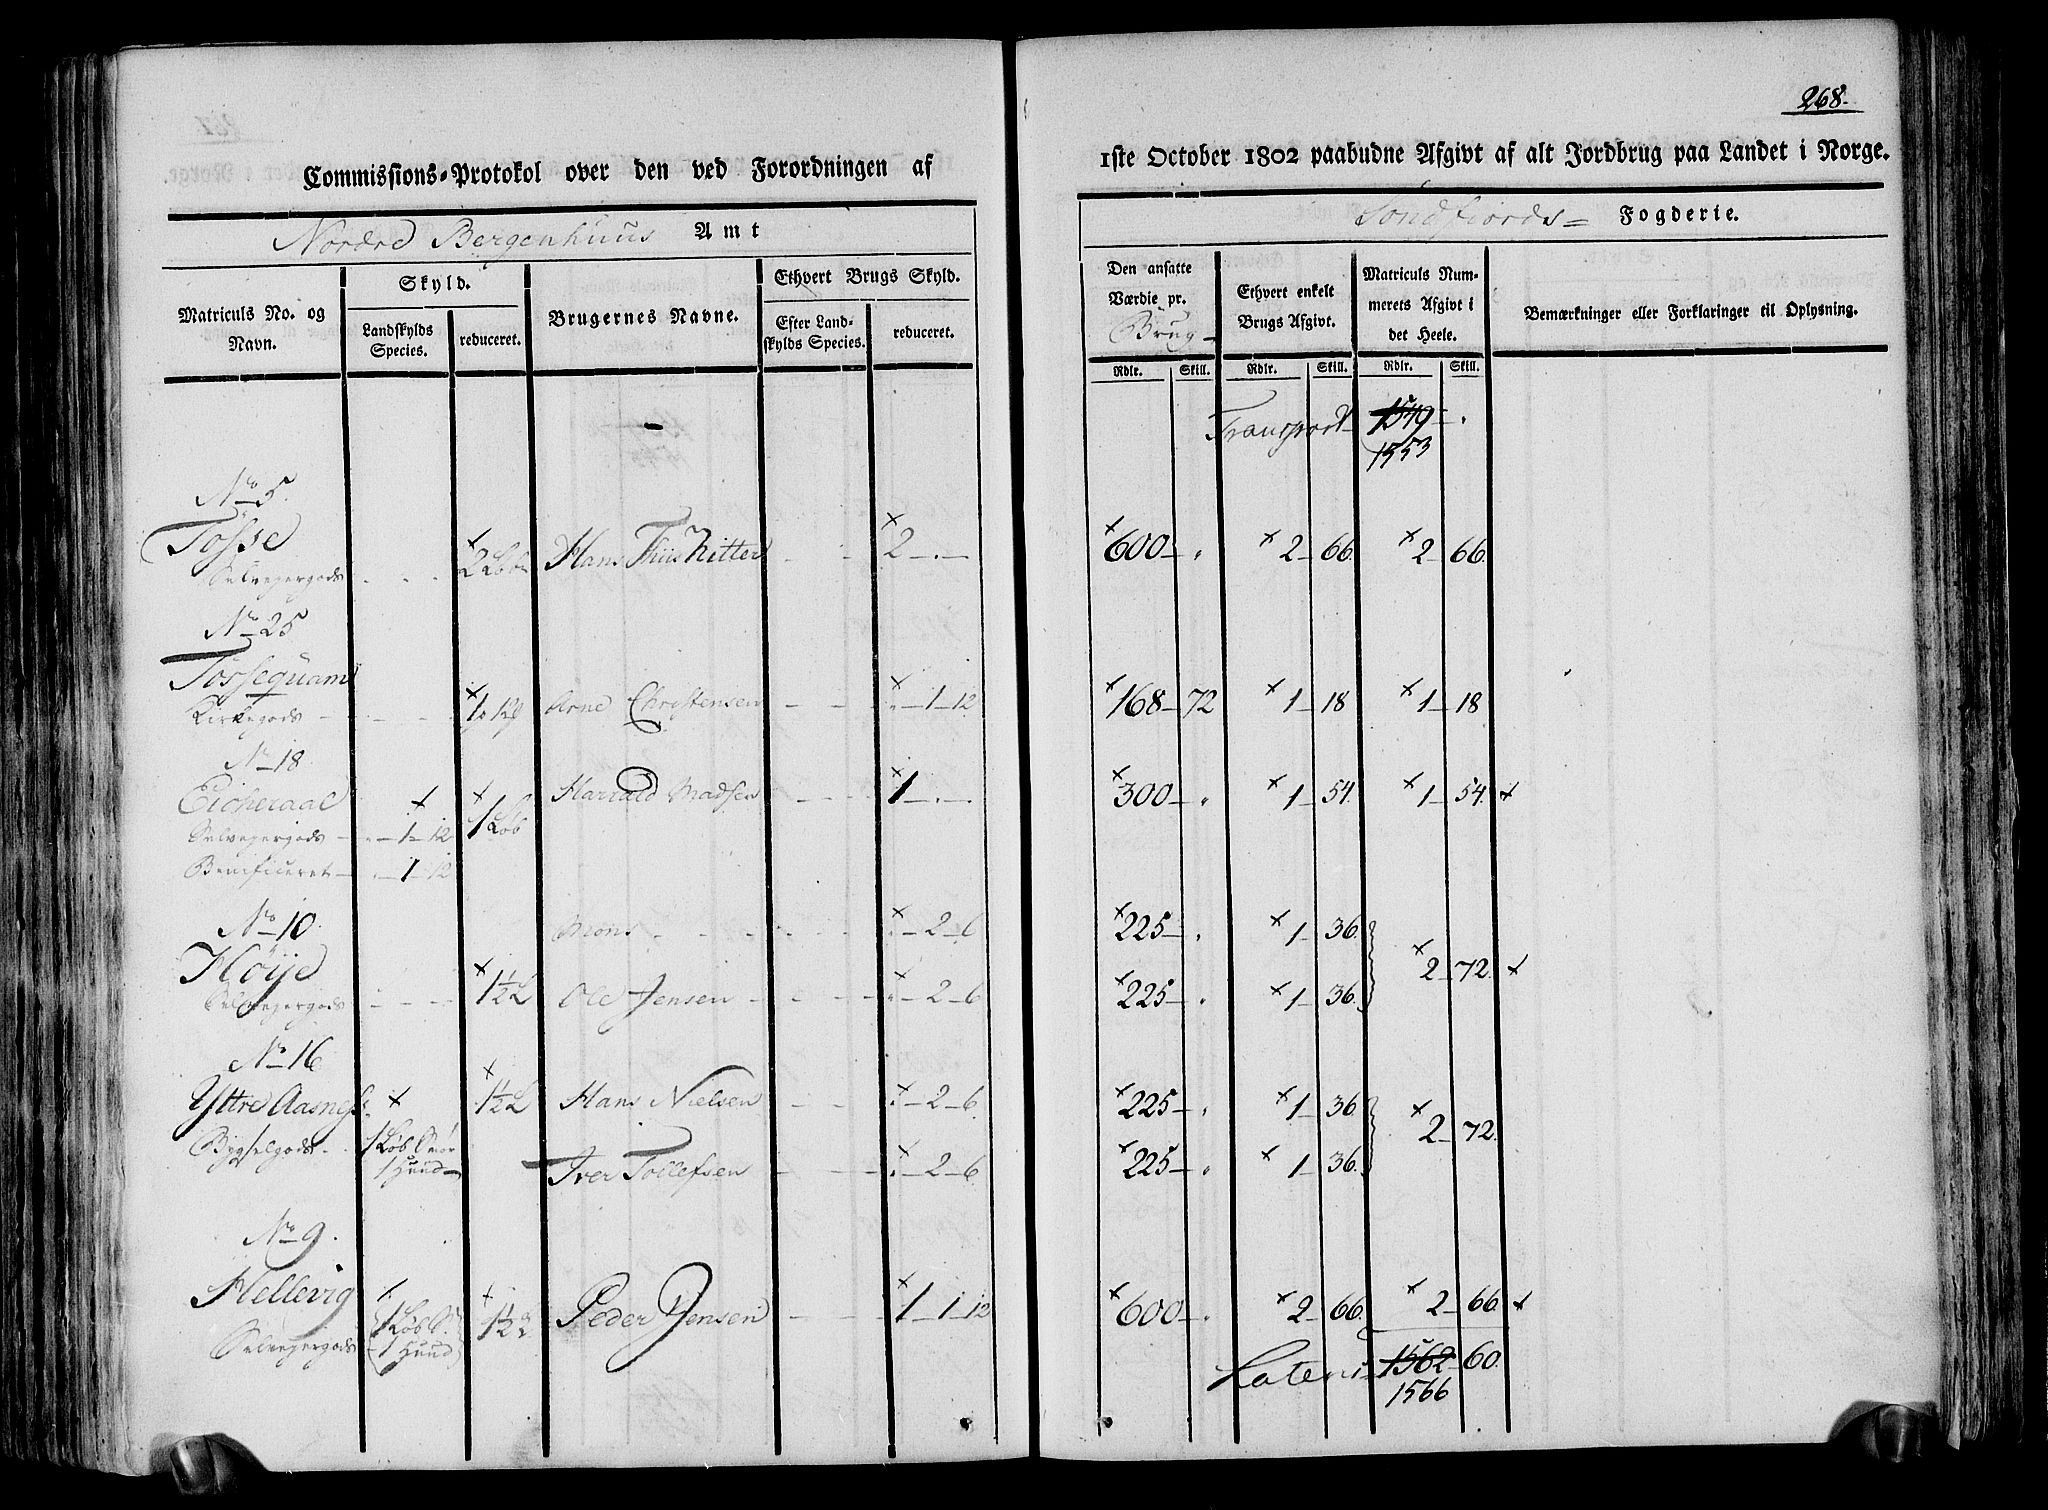 268.
Commissions-Protokol over den ved Forordningen af 1ste October 1802 paabudne Afgivt af alt Jordbrug paa Landet i Norge.
Nordre Bergenhuus Amt Söndfiords Fogderie.
Matriculs No. og Navn. | Skyld. Landskylds Species. | reduceret. | Brugernes Navne. | Ethvert Brugs Skyld. Efter Landskylds Species. | reduceret. | Den ansatte Værdie pr. Brug Rdlr. Skill. | Ethvert enkelt Brugs Afgivt. Rdlr. Skill. | Matriculs Nummerets Afgivt i det Heele. Rdlr. Skill. | Bemærkninger eller Forklaringer til Oplysning.
Transport 1549 - .
1553
No 5.
Tösse × 2 Löb Hans Thiis Ritter - - × 2 - . - × 600 - . × 2 - 66. × 2 - 66.
Selvejergods - - -
No 25
Tössequam × Arne Christensen - - × - 1 - 12. × 168 - 72 × 1 - 18 × 1 - 18.
Kirkegods - - -
No 18.
Eicheraal × × 1 Löb Harrald Madsen - - × 1 - . - × 300 - . × 1 - 54. × 1 - 54. ×
Selvejergods - - 1 - 12
Benificeret - - 1 - 12
No 10. Mons - - - - × - 2 - 6. × 225 - . × 1 - 36.
Höije × 2 - 72. ×
Selvejergods - - - × 1½ L Ole Jensen - - - × - 2 - 6 × 225 - . × 1 - 36.
No 16
Yttre Aasnes × × 1½ L Hans Nielsen - - × - 2 - 6. × 225 - . × 1 - 36.
× 2 - 72.
Bygselgods - 1 Löb Smör
1 Huud Iver Tollefsen - - × - 2 - 6. × 225 - . × 1 - 36.
No 9.
Hellevig × 1 Löb S. × 1½ L Peder Jensen - - - × 1 - 1 - 12 × 600 - . × 2 - 66. × 2 - 66. ×
Selvejergods 1 Huud
Lateri 1562 - 60.
1566